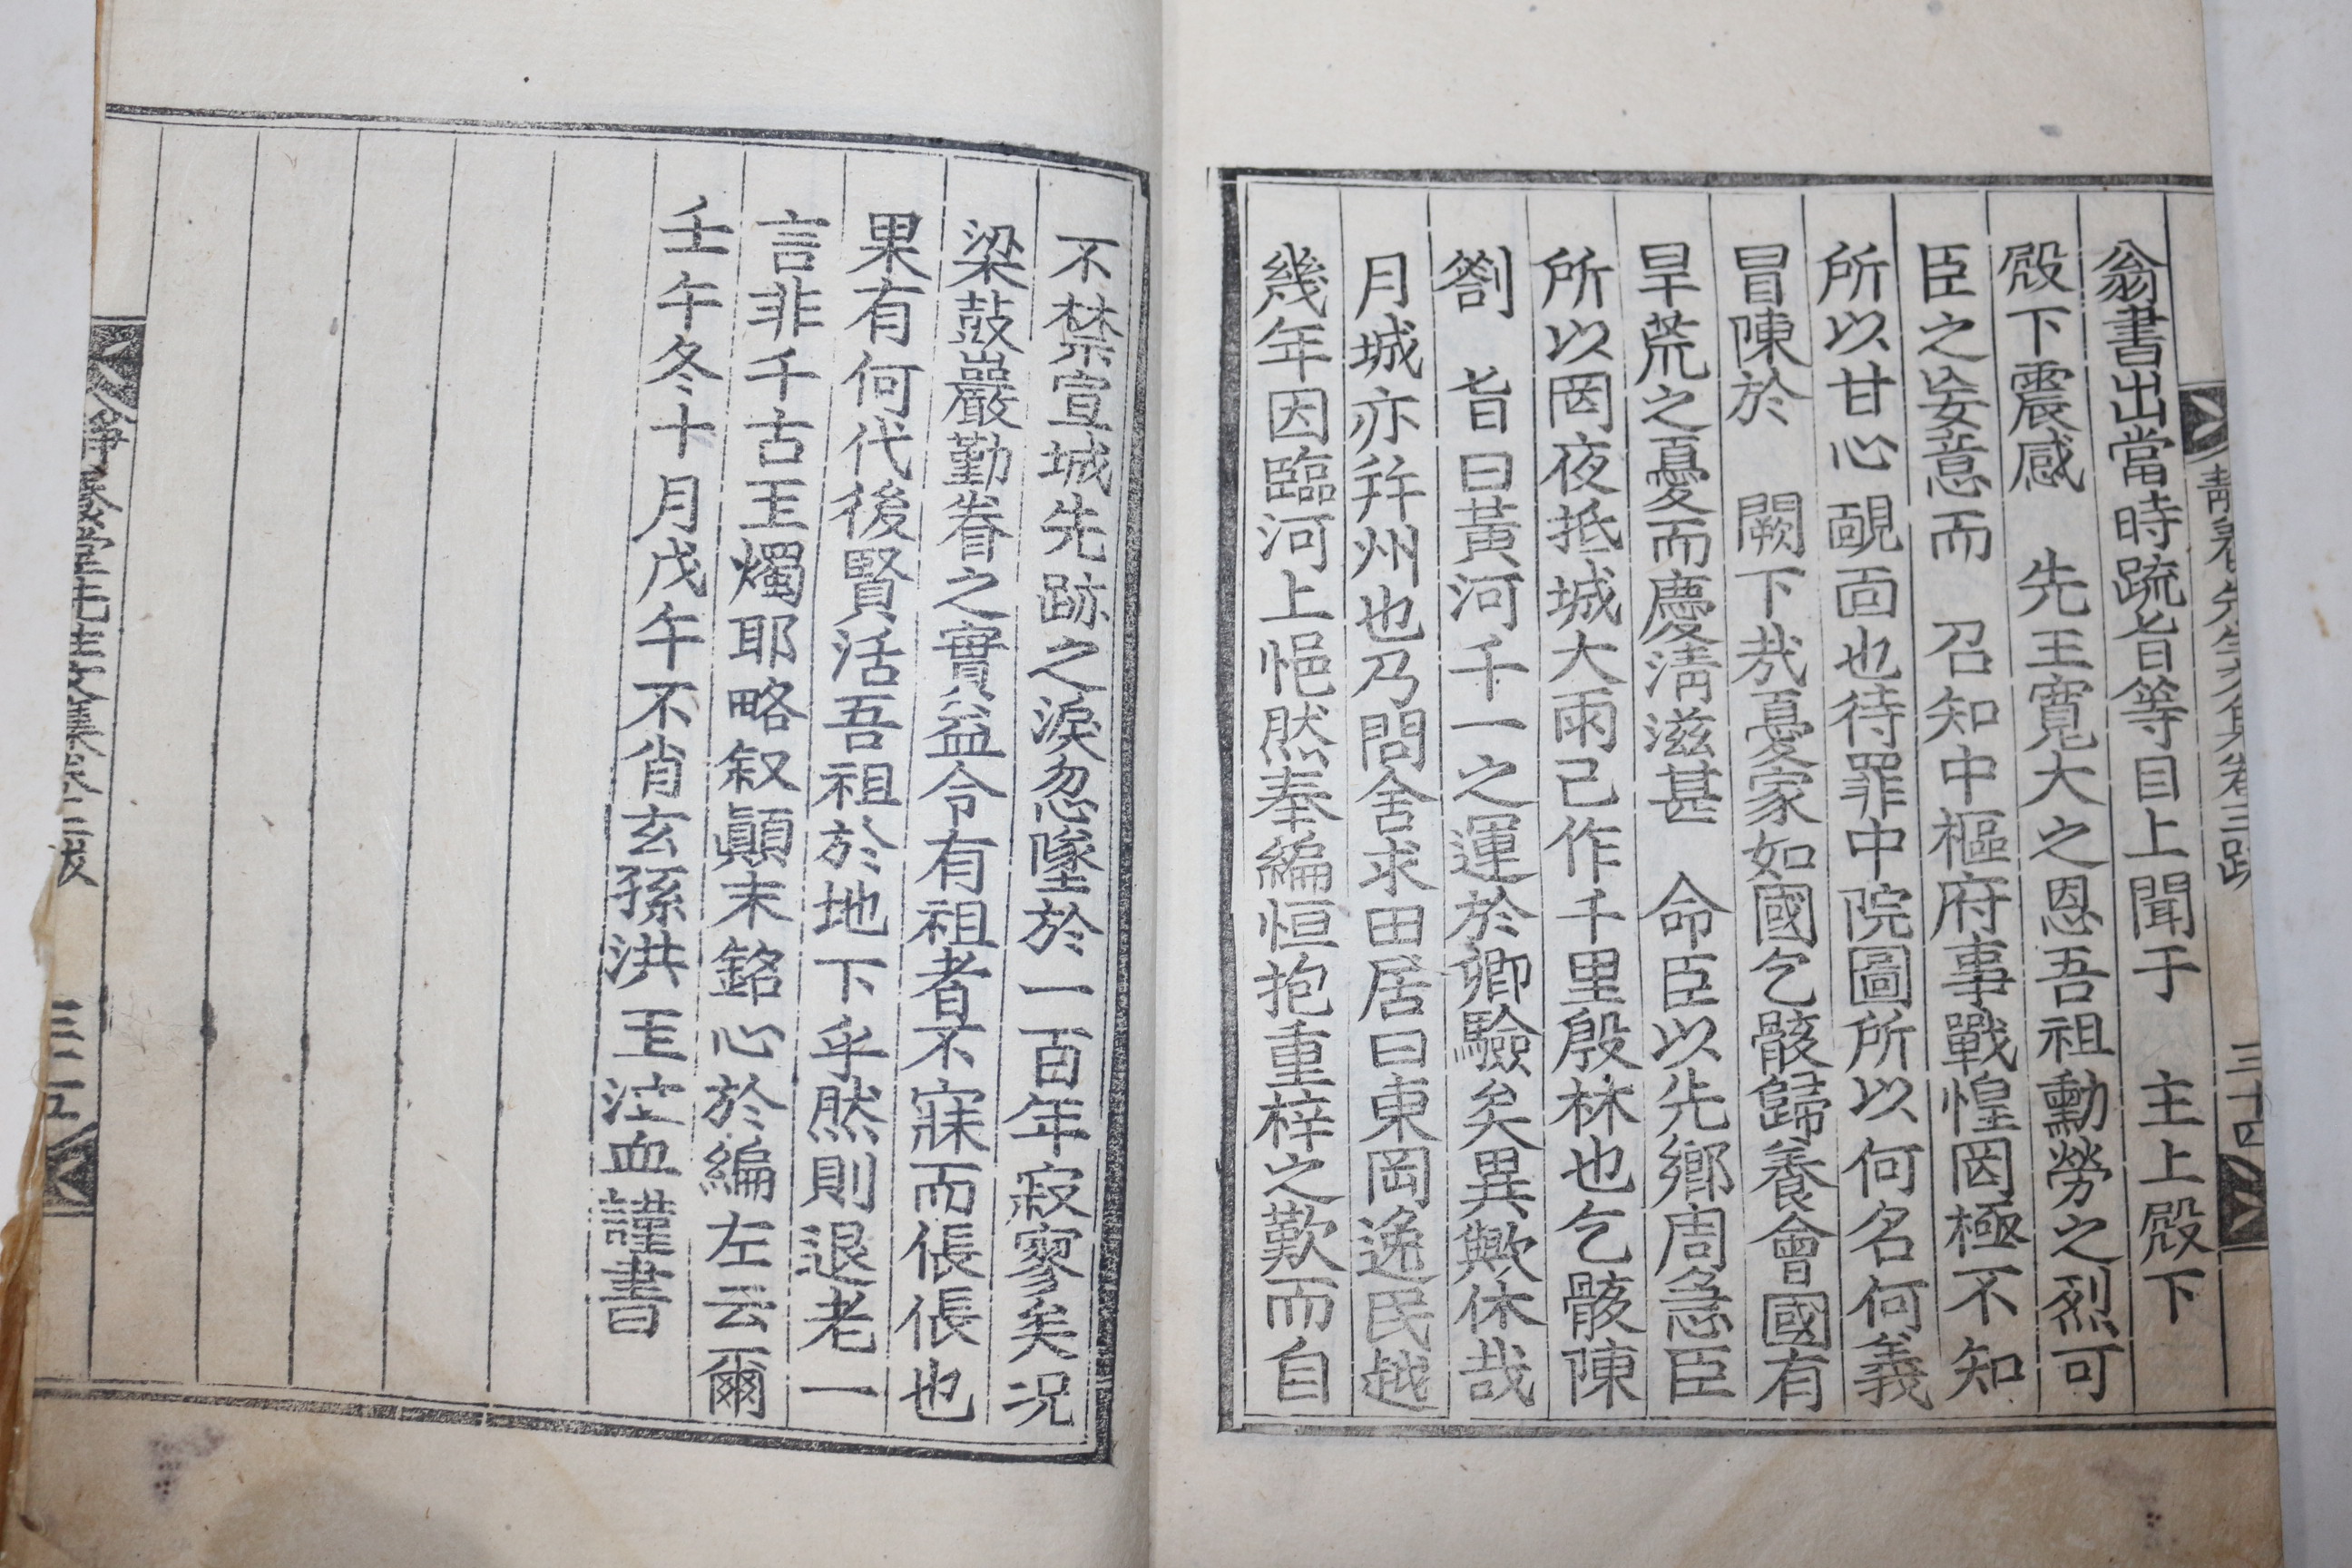 翁書出當時疏旨等目上聞于 主上殿下
殿下震感 先王寬大之恩吾祖勳勞之烈可
臣之妄意而 召知中樞府事戰惶罔極不知
所以甘心靦面也待罪中院圖所以何名何義
冒陳於 闕下哉憂家如國乞骸歸養會國有
旱荒之憂而慶淸滋甚 命臣以先鄉周急臣
所以罔夜抵城大雨已作千里殷林也乞骸陳
劄 旨曰黃河千一之運於卿驗矣異歟休哉
月城亦幷州也乃問舍求田居曰東岡逸民越
幾年因臨河上悒然奉編恒抱重梓之歎而自
不禁宣城先跡之淚忽墜於一百年寂寥矣況
梁鼓巖勤眷之實益令有祖者不寐而倀倀也
果有何代後賢活吾祖於地下乎然則退老一
言非千古玉燭耶略叙顚末銘心於編左云爾
壬午冬十月戊午不肖玄孫洪 玉泣血謹書